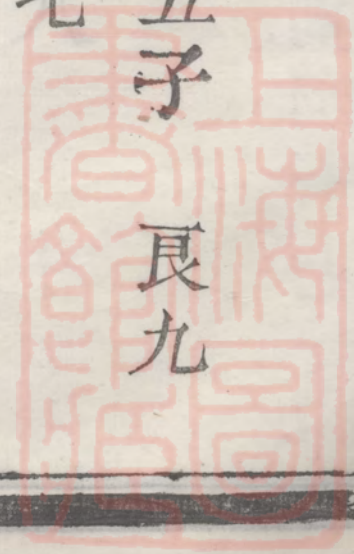 五子
𠄢九
七
上海圖
書館藏